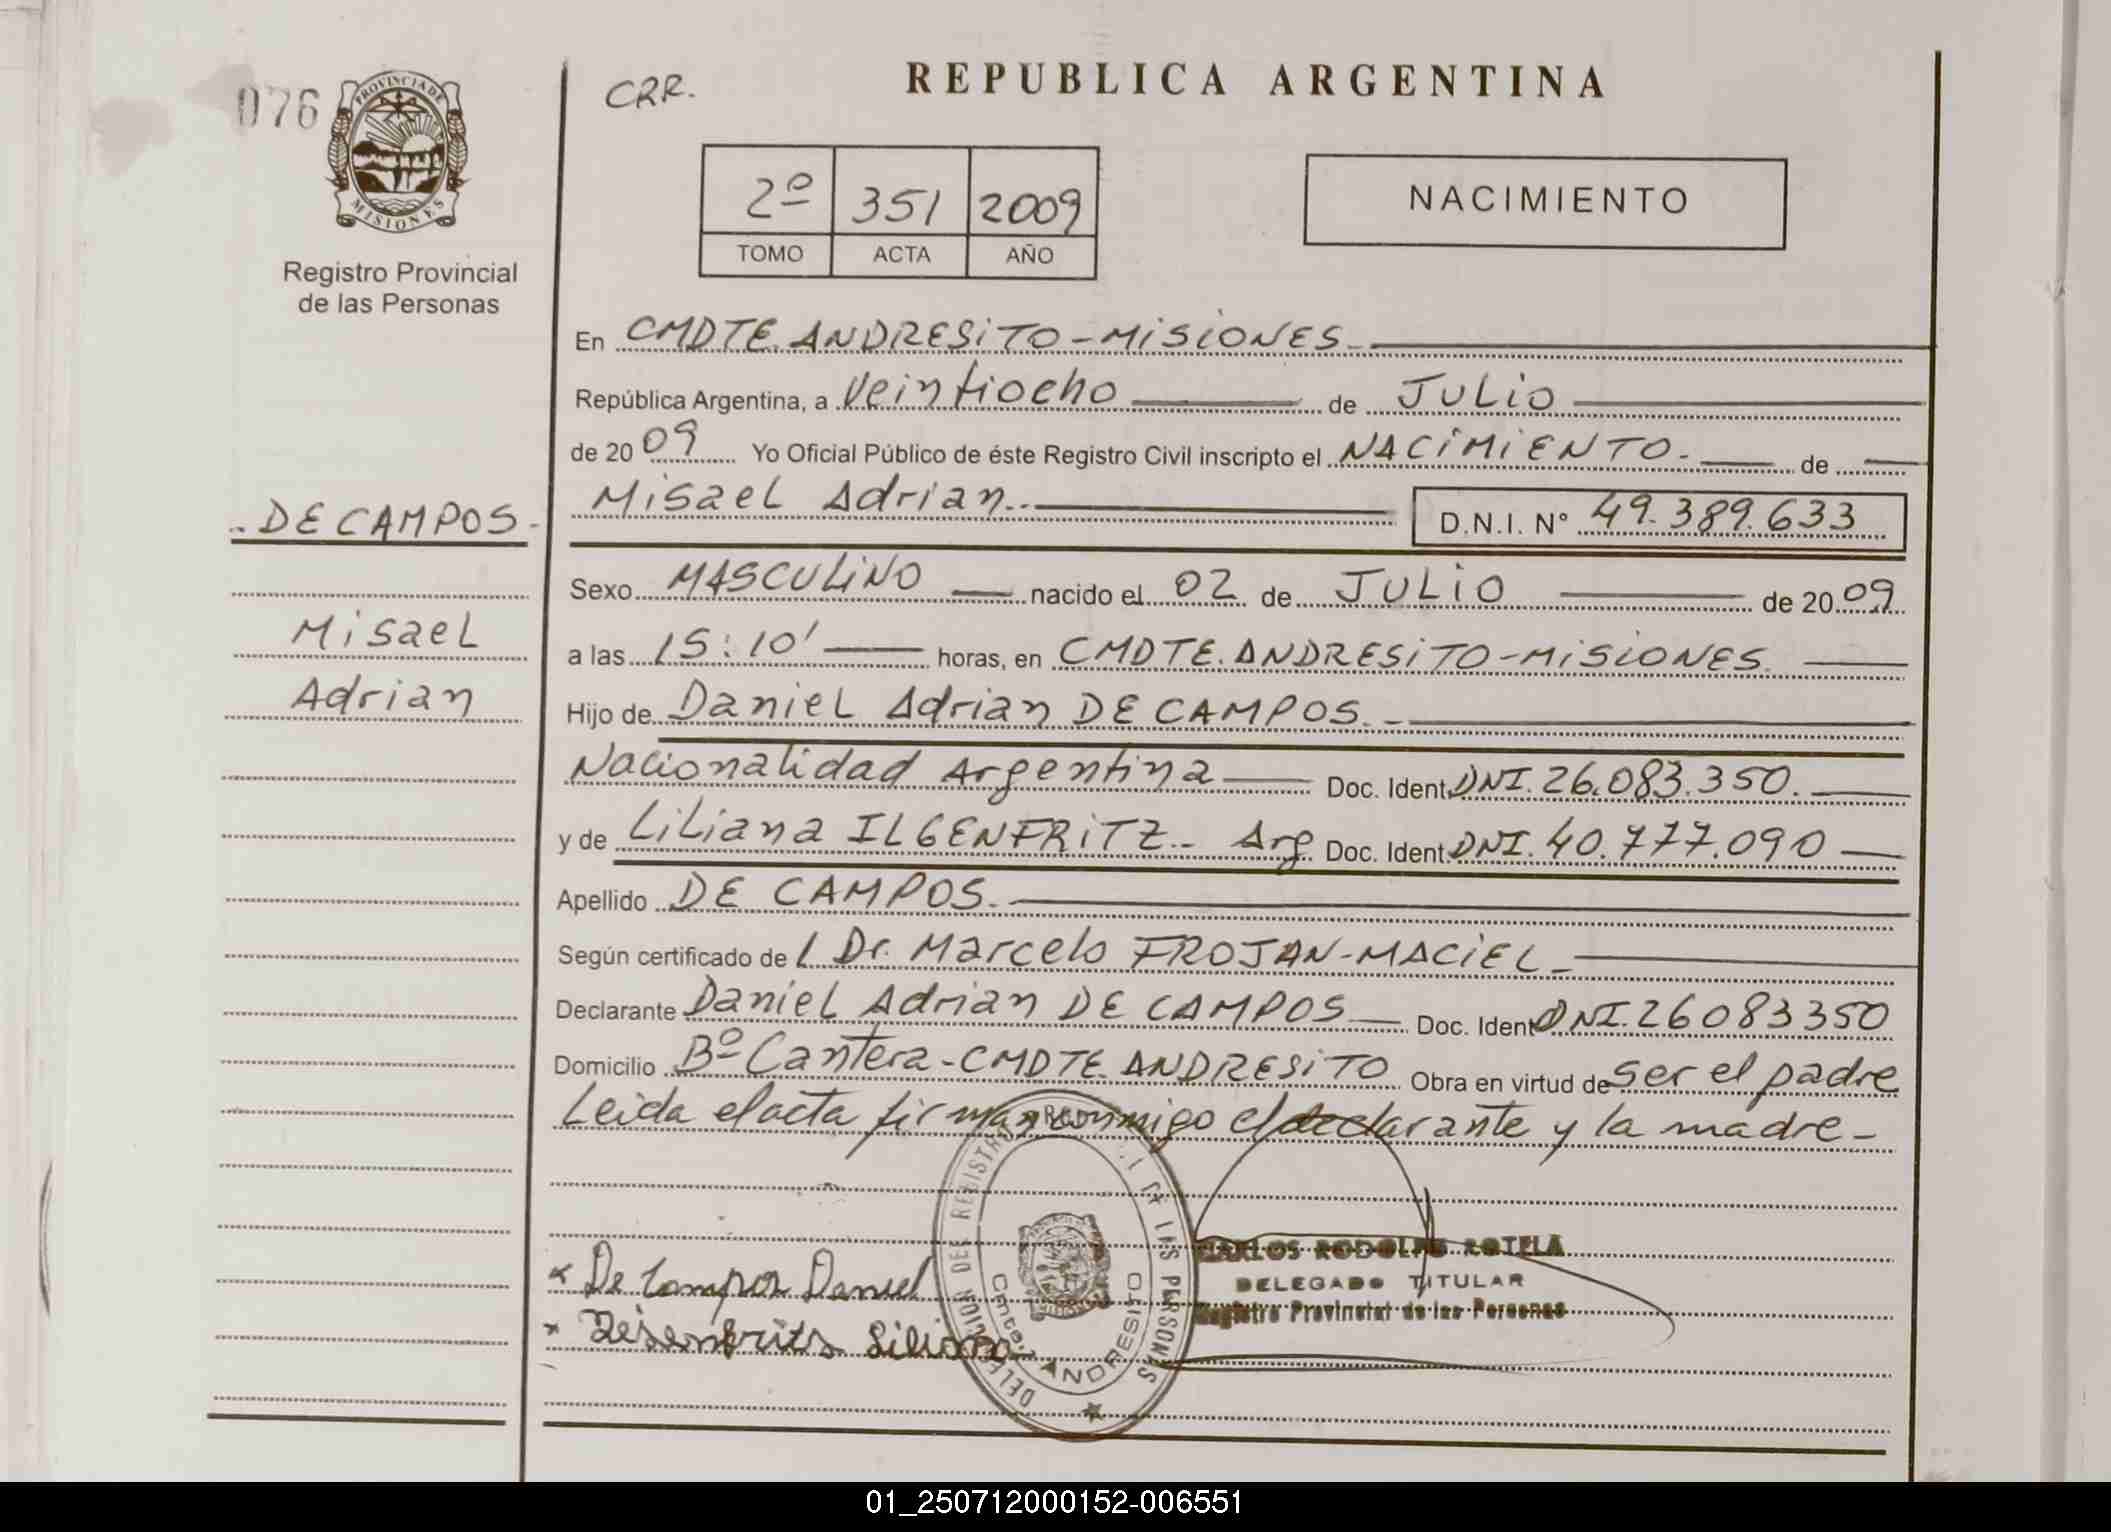 076
PROVINCIA DE
MISIONES
Registro Provincial
de las Personas
CRR.
REPUBLICA ARGENTINA
2º 351 2009
TOMO ACTA AÑO
NACIMIENTO
En CMDTE. ANDRESITO - MISIONES.
República Argentina, a Veintiocho de JULIO
de 2009 Yo Oficial Público de éste Registro Civil inscripto el NACIMIENTO. de
Misael Adrian.. D.N.I. Nº 49.389.633
- DE CAMPOS -
Misael
Adrian
Sexo MASCULINO nacido el 02 de JULIO de 2009
a las 15:10' horas, en CMDTE. ANDRESITO - MISIONES.
Hijo de Daniel Adrian DE CAMPOS. -
Nacionalidad Argentina Doc. Ident. DNI. 26.083.350.
y de Liliana ILGENFRITZ.. Arg Doc. Ident. DNI. 40.777.090
Apellido DE CAMPOS.
Según certificado de l Dr. Marcelo FROJAN - MACIEL -
Declarante Daniel Adrian DE CAMPOS Doc. Ident DNI. 26083350
Domicilio Bº Cantera - CMDTE. ANDRESITO Obra en virtud de ser el padre
Leida el acta firman conmigo el declarante y la madre -
x De Campos Daniel
x Liliana
DELEGACION DEL REGISTRO DE LAS PERSONAS
ANDRESITO
CARLOS RODOLFO ROTELA
DELEGADO TITULAR
Registro Provincial de las Personas
01_250712000152-006551